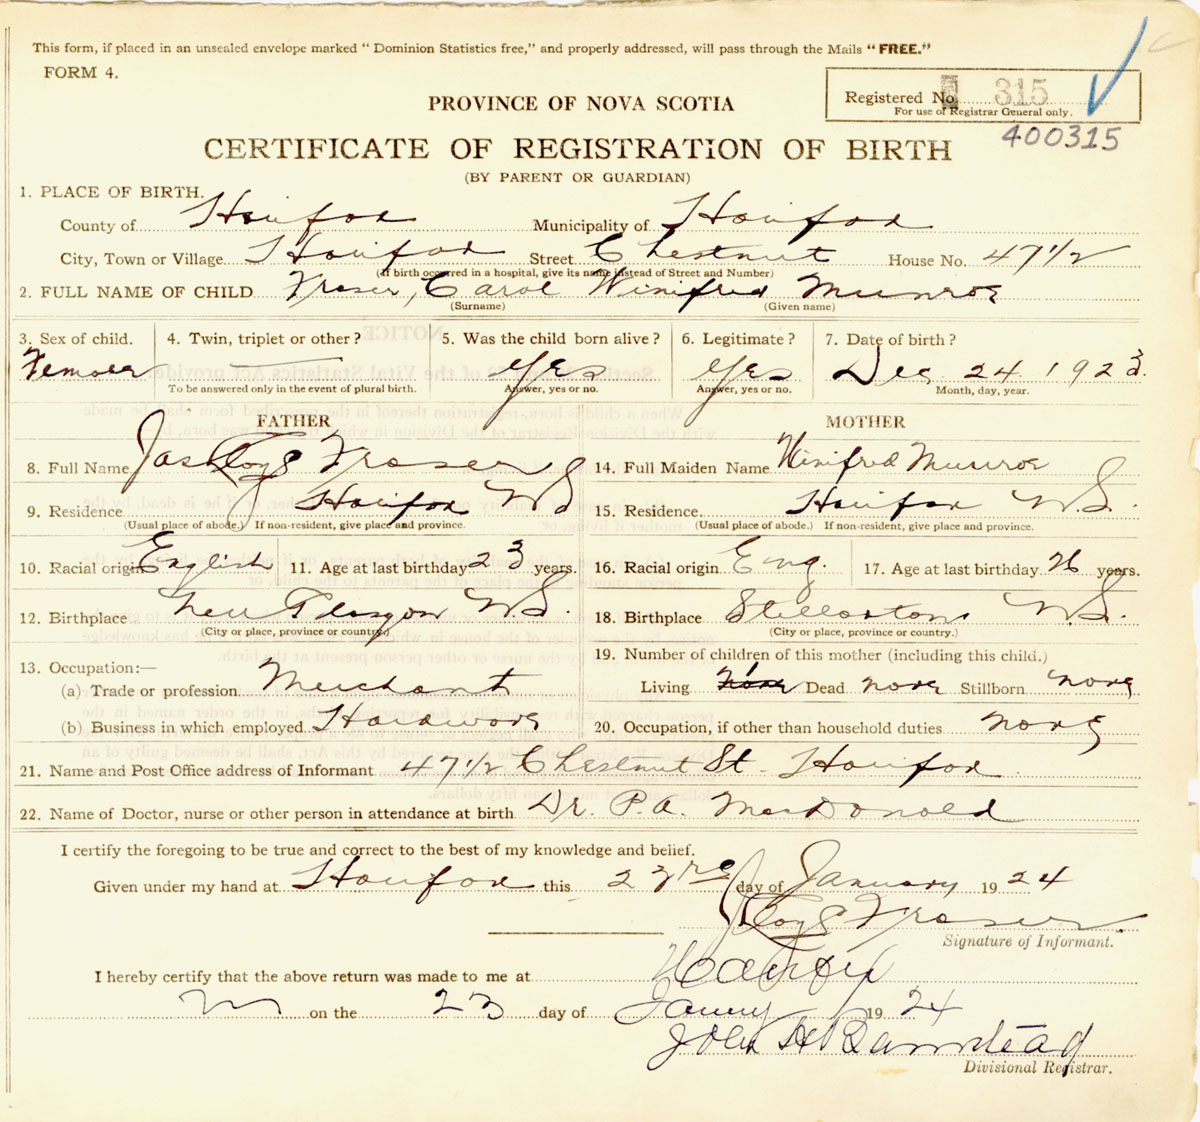 This form, if placed in an unsealed envelope marked “Dominion Statistics free,” and properly addressed, will pass through the Mails “FREE.”
FORM 4.
Registered No. 315
For use of Registrar General only.
400315
PROVINCE OF NOVA SCOTIA
CERTIFICATE OF REGISTRATION OF BIRTH
(BY PARENT OR GUARDIAN)
1. PLACE OF BIRTH.
County of Halifax Municipality of Halifax
City, Town or Village Halifax Street Chestnut House No. 47 1/2
(If birth occurred in a hospital, give its name instead of Street and Number)
2. FULL NAME OF CHILD Fraser, Carol Winifred Munroe
(Surname) (Given name)
3. Sex of child. 4. Twin, triplet or other? 5. Was the child born alive? 6. Legitimate? 7. Date of birth?
Female Yes Yes Dec 24 1923.
To be answered only in the event of plural birth. Answer, yes or no. Answer, yes or no. Month, day, year.
FATHER MOTHER
8. Full Name Jas Fraser 14. Full Maiden Name Winifred Munroe
9. Residence Halifax N S 15. Residence. Halifax N.S.
(Usual place of abode.) If non-resident, give place and province. (Usual place of abode.) If non-resident, give place and province.
10. Racial origin English 11. Age at last birthday 23 years. 16. Racial origin Eng. 17. Age at last birthday 26 years.
12. Birthplace New Glasgow N.S. 18. Birthplace Stellarton N.S.
(City or place, province or country.) (City or place, province or country.)
13. Occupation:— 19. Number of children of this mother (including this child.)
(a) Trade or profession Merchant Living 1 None Dead none Stillborn none
(b) Business in which employed Hardware 20. Occupation, if other than household duties none
21. Name and Post Office address of Informant 47 1/2 Chestnut St. Halifax
22. Name of Doctor, nurse or other person in attendance at birth Dr. P.A. MacDonald
I certify the foregoing to be true and correct to the best of my knowledge and belief.
Given under my hand at Halifax this 23rd day of January 1924
Fraser
Signature of Informant.
I hereby certify that the above return was made to me at Halifax
on the 23 day of January 1924
John H Barnstead
Divisional Registrar.